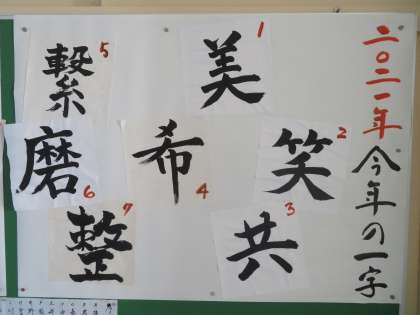 二〇二一年
今年の一字
1
美
2
笑
3
共
4
希
5
繋
6
磨
7
整